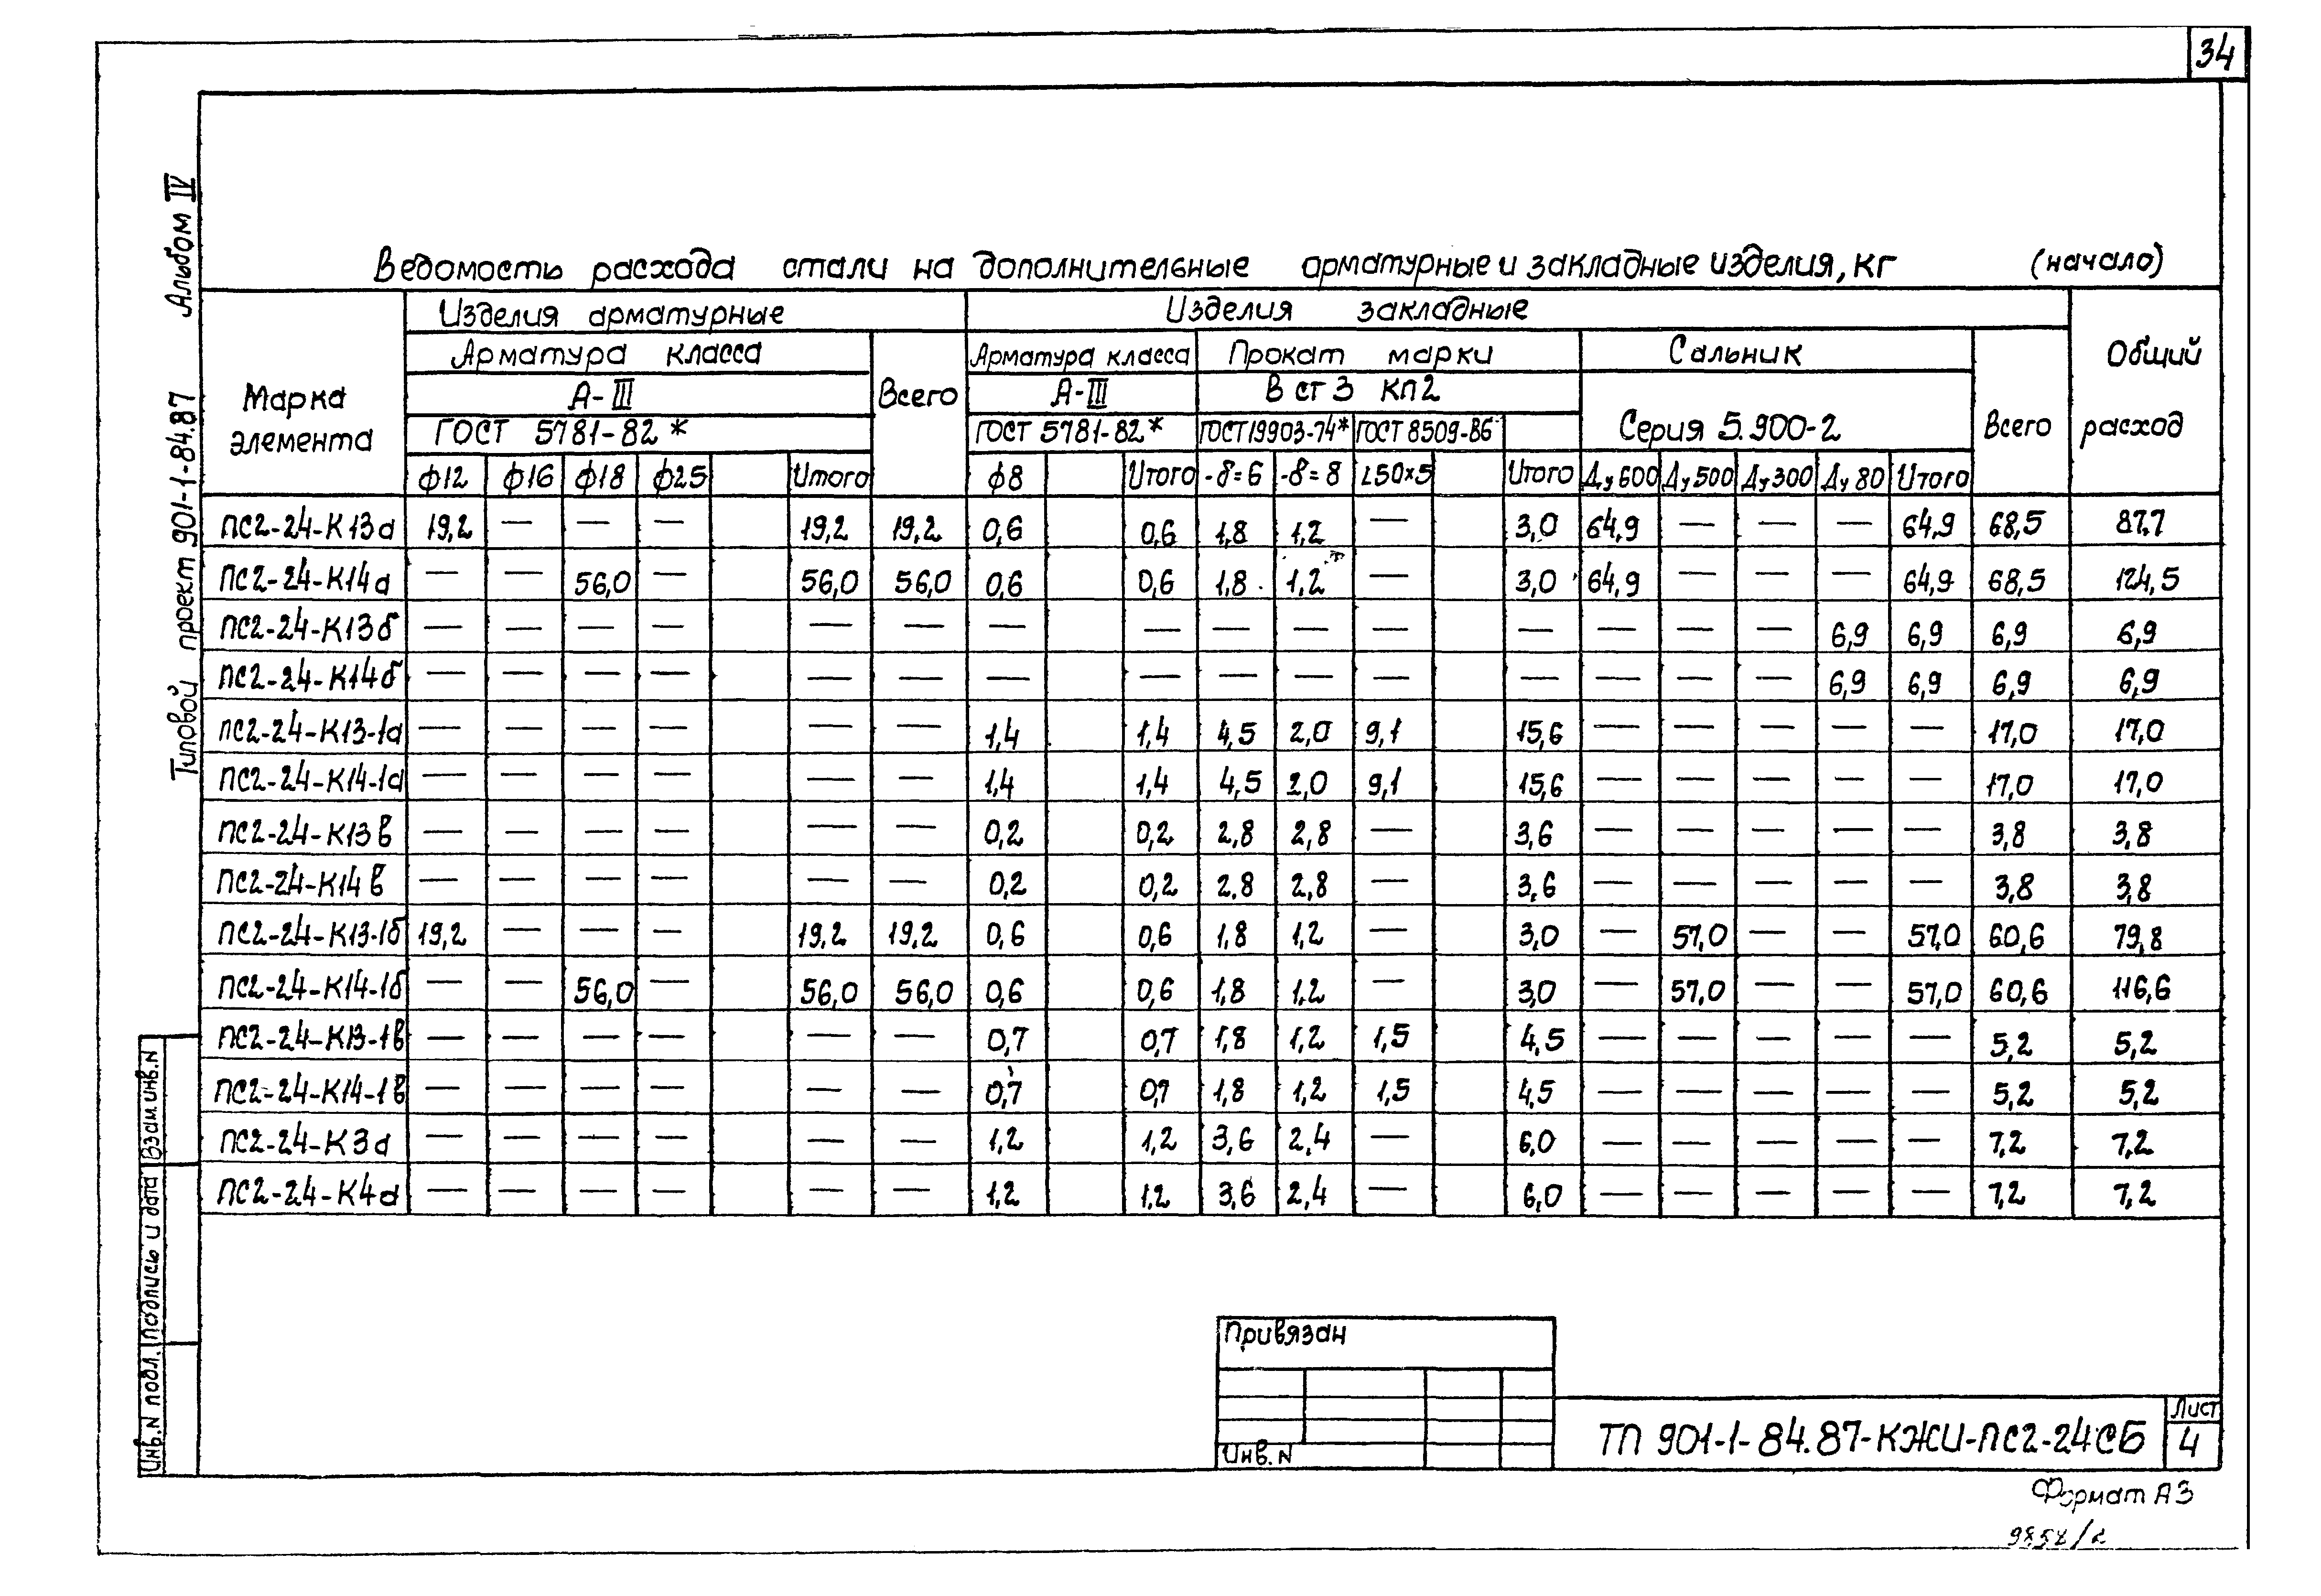 34
Типовой проект 901-1-84.87 Альбом IV
Ведомость расхода стали на дополнительные арматурные и закладные изделия, кг (начало)
Марка элемента
Изделия арматурные
Изделия закладные
Общий расход
Арматура класса
Всего
Арматура класса
Прокат марки
Сальник
Всего
А-III
А-III
В ст 3 кп 2
ГОСТ 5781-82*
ГОСТ 5781-82*
ГОСТ 19903-74*
ГОСТ 8509-86
Серия 5.900-2
ф12 ф16 ф18 ф25 Итого ф8 Итого -δ=6 -δ=8 L50×5 Итого Ду600 Ду500 Ду300 Ду80 Итого
ПС2-24-К13а 19,2 — — — 19,2 19,2 0,6 0,6 1,8 1,2 — 3,0 64,9 — — — 64,9 68,5 87,7
ПС2-24-К14а — — 56,0 — 56,0 56,0 0,6 0,6 1,8 1,2 — 3,0 64,9 — — — 64,9 68,5 124,5
ПС2-24-К13б — — — — — — — — — — — — — — — 6,9 6,9 6,9 6,9
ПС2-24-К14б — — — — — — — — — — — — — — — 6,9 6,9 6,9 6,9
ПС2-24-К13-1а — — — — — — 1,4 1,4 4,5 2,0 9,1 15,6 — — — — — 17,0 17,0
ПС2-24-К14-1а — — — — — — 1,4 1,4 4,5 2,0 9,1 15,6 — — — — — 17,0 17,0
ПС2-24-К13в — — — — — — 0,2 0,2 2,8 2,8 — 3,6 — — — — — 3,8 3,8
ПС2-24-К14в — — — — — — 0,2 0,2 2,8 2,8 — 3,6 — — — — — 3,8 3,8
ПС2-24-К13-1б 19,2 — — — 19,2 19,2 0,6 0,6 1,8 1,2 — 3,0 — 57,0 — — 57,0 60,6 79,8
ПС2-24-К14-1б — — 56,0 — 56,0 56,0 0,6 0,6 1,8 1,2 — 3,0 — 57,0 — — 57,0 60,6 116,6
ПС2-24-К13-1в — — — — — — 0,7 0,7 1,8 1,2 1,5 4,5 — — — — — 5,2 5,2
ПС2-24-К14-1в — — — — — — 0,7 0,7 1,8 1,2 1,5 4,5 — — — — — 5,2 5,2
ПС2-24-К3а — — — — — — 1,2 1,2 3,6 2,4 — 6,0 — — — — — 7,2 7,2
ПС2-24-К4а — — — — — — 1,2 1,2 3,6 2,4 — 6,0 — — — — — 7,2 7,2
Взам. инв. N
Подпись и дата
Инв. N подл.
Привязан
Инв. N
ТП 901-1-84.87-КЖИ-ПС2-24СБ
Лист
4
Формат А3
9858/2